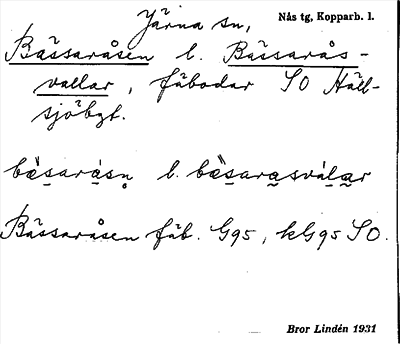 Järna sn,
Nås tg, Kopparb. l.
Bässaråsen l. Bässarås-
vallar, fäbodar SO Häll-
sjöbgt.
bæ̀saràsn̥ l. bæ̀sarasvàlar
Bässaråsen fäb. G95, kG95 SO.
Bror Lindén 1931